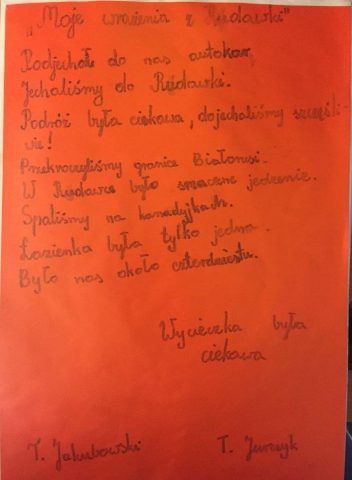 „Moje wrażenia z Rudawki"
Podjechał do nas autokar
Jechaliśmy do Rudawki.
Podróż była ciekawa, dojechaliśmy szczęśli-
wie!
Przekroczyliśmy granice Białorusi.
W Rudawce było smaczne jedzenie.
Spaliśmy na kanadyjkach.
Łazienka była tylko jedna.
Było nas około czterdziestu.
Wycieczka była
ciekawa
T. Jakubowski T. Jurczyk